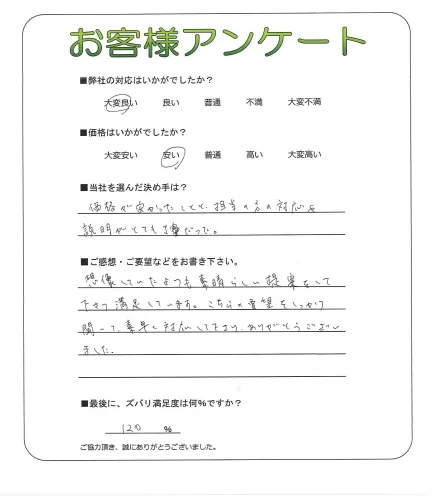 お客様アンケート
■弊社の対応はいかがでしたか？
大変良い 良い 普通 不満 大変不満
■価格はいかがでしたか？
大変安い 安い 普通 高い 大変高い
■当社を選んだ決め手は？
価格が安かったことと、担当の方の対応と
説明がとても丁寧だった。
■ご感想・ご要望などをお書き下さい。
想像していたよりも素晴らしい提案をして
下さり満足しています。こちらの要望をしっかり
聞いて、素早く対応して下さり、ありがとうござい
ました。
■最後に、ズバリ満足度は何％ですか？
120 ％
ご協力頂き、誠にありがとうございました。